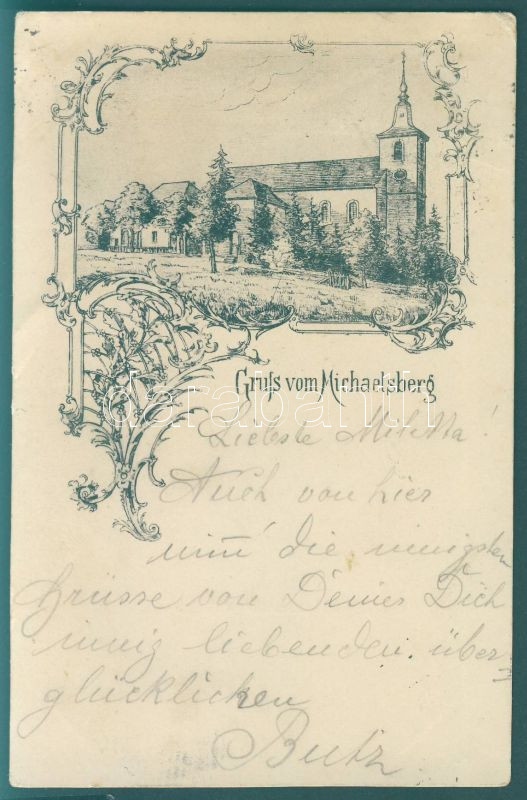 Gruss vom Michaelsberg
darabanth
Liebste Miletta!
Auch von hier
nim̄ die innigsten
Grüsse von Deiner Dich
innig liebenden über-
glücklichen
Butz